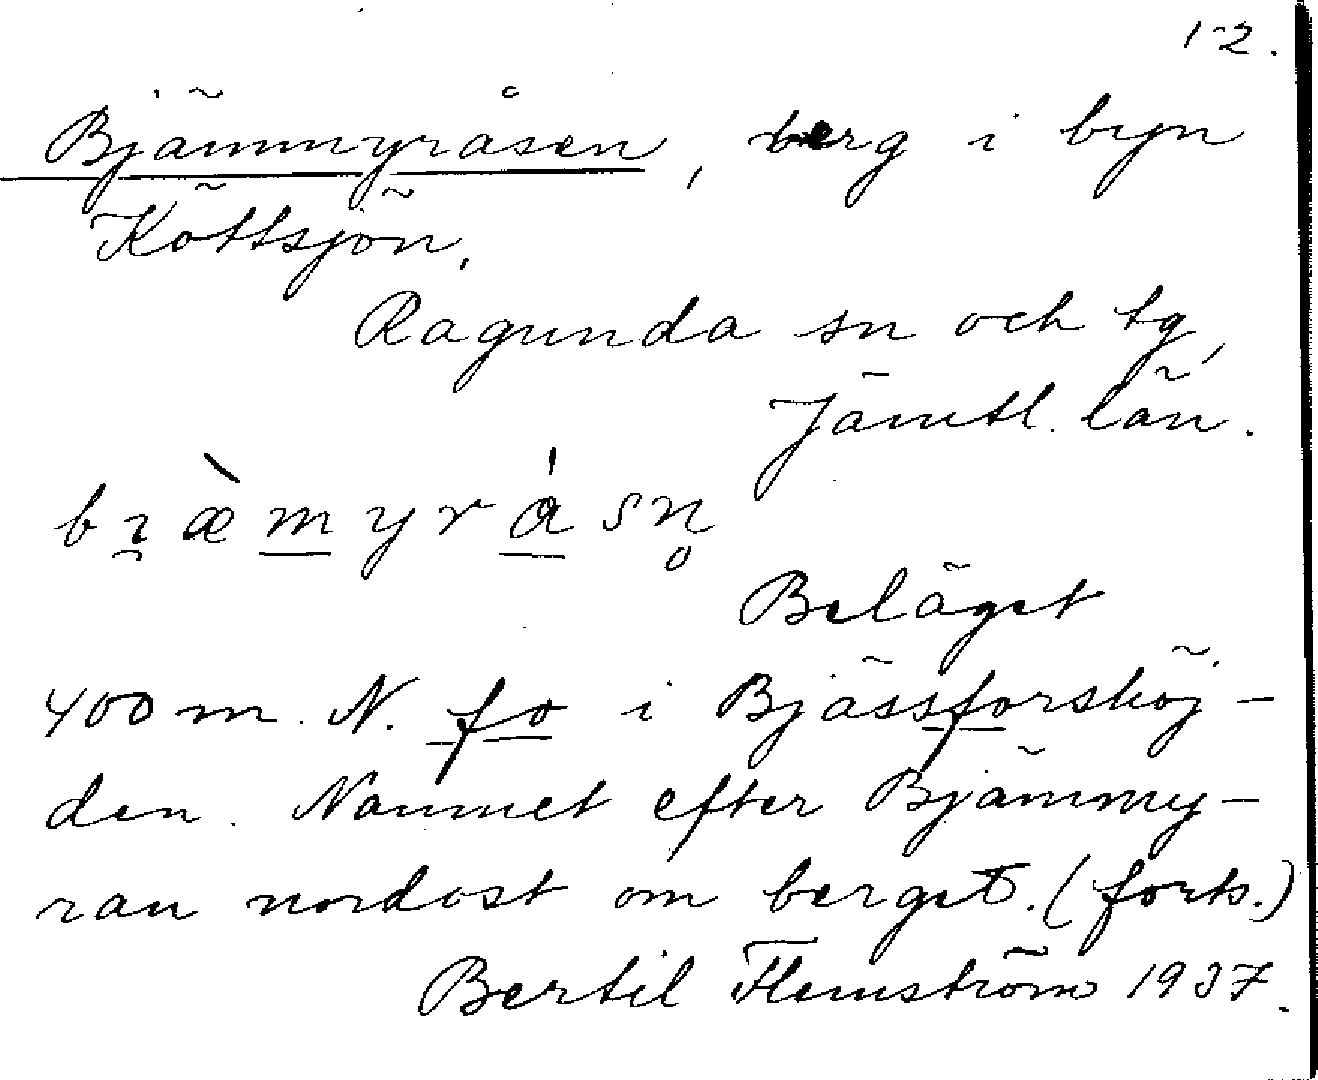 12.
Bjämmyråsen, berg i byn
Köttsjön,
Ragunda sn och tg,
Jämtl. län.
bɿ̯æ̀myråsn̥
Beläget
400 m. N. fo i Bjässforshöj-
den. Namnet efter Bjämmy-
ran nordost om berget. (forts.)
Bertil Flemström 1937.